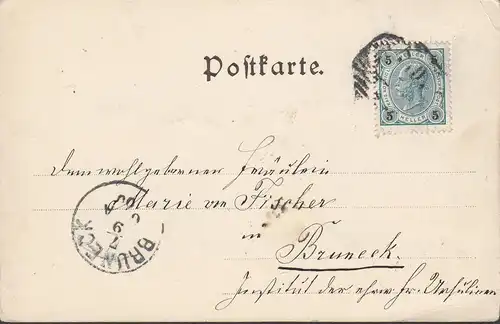 Postkarte.
5 5
HELLER
5 5
Dem wohlgebornen Fräulein
Marie von Fischer
in
Bruneck.
Institut der ehrw. Fr. Ursulinen
BRUNECK
7 9